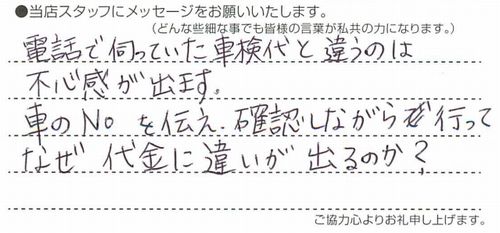 ●当店スタッフにメッセージをお願いいたします。
（どんな些細な事でも皆様の言葉が私共の力になります。）
電話で伺っていた車検代と違うのは
不心感が出ます。
車のNoを伝え、確認しながら行って
なぜ代金に違いが出るのか？
ご協力心よりお礼申し上げます。